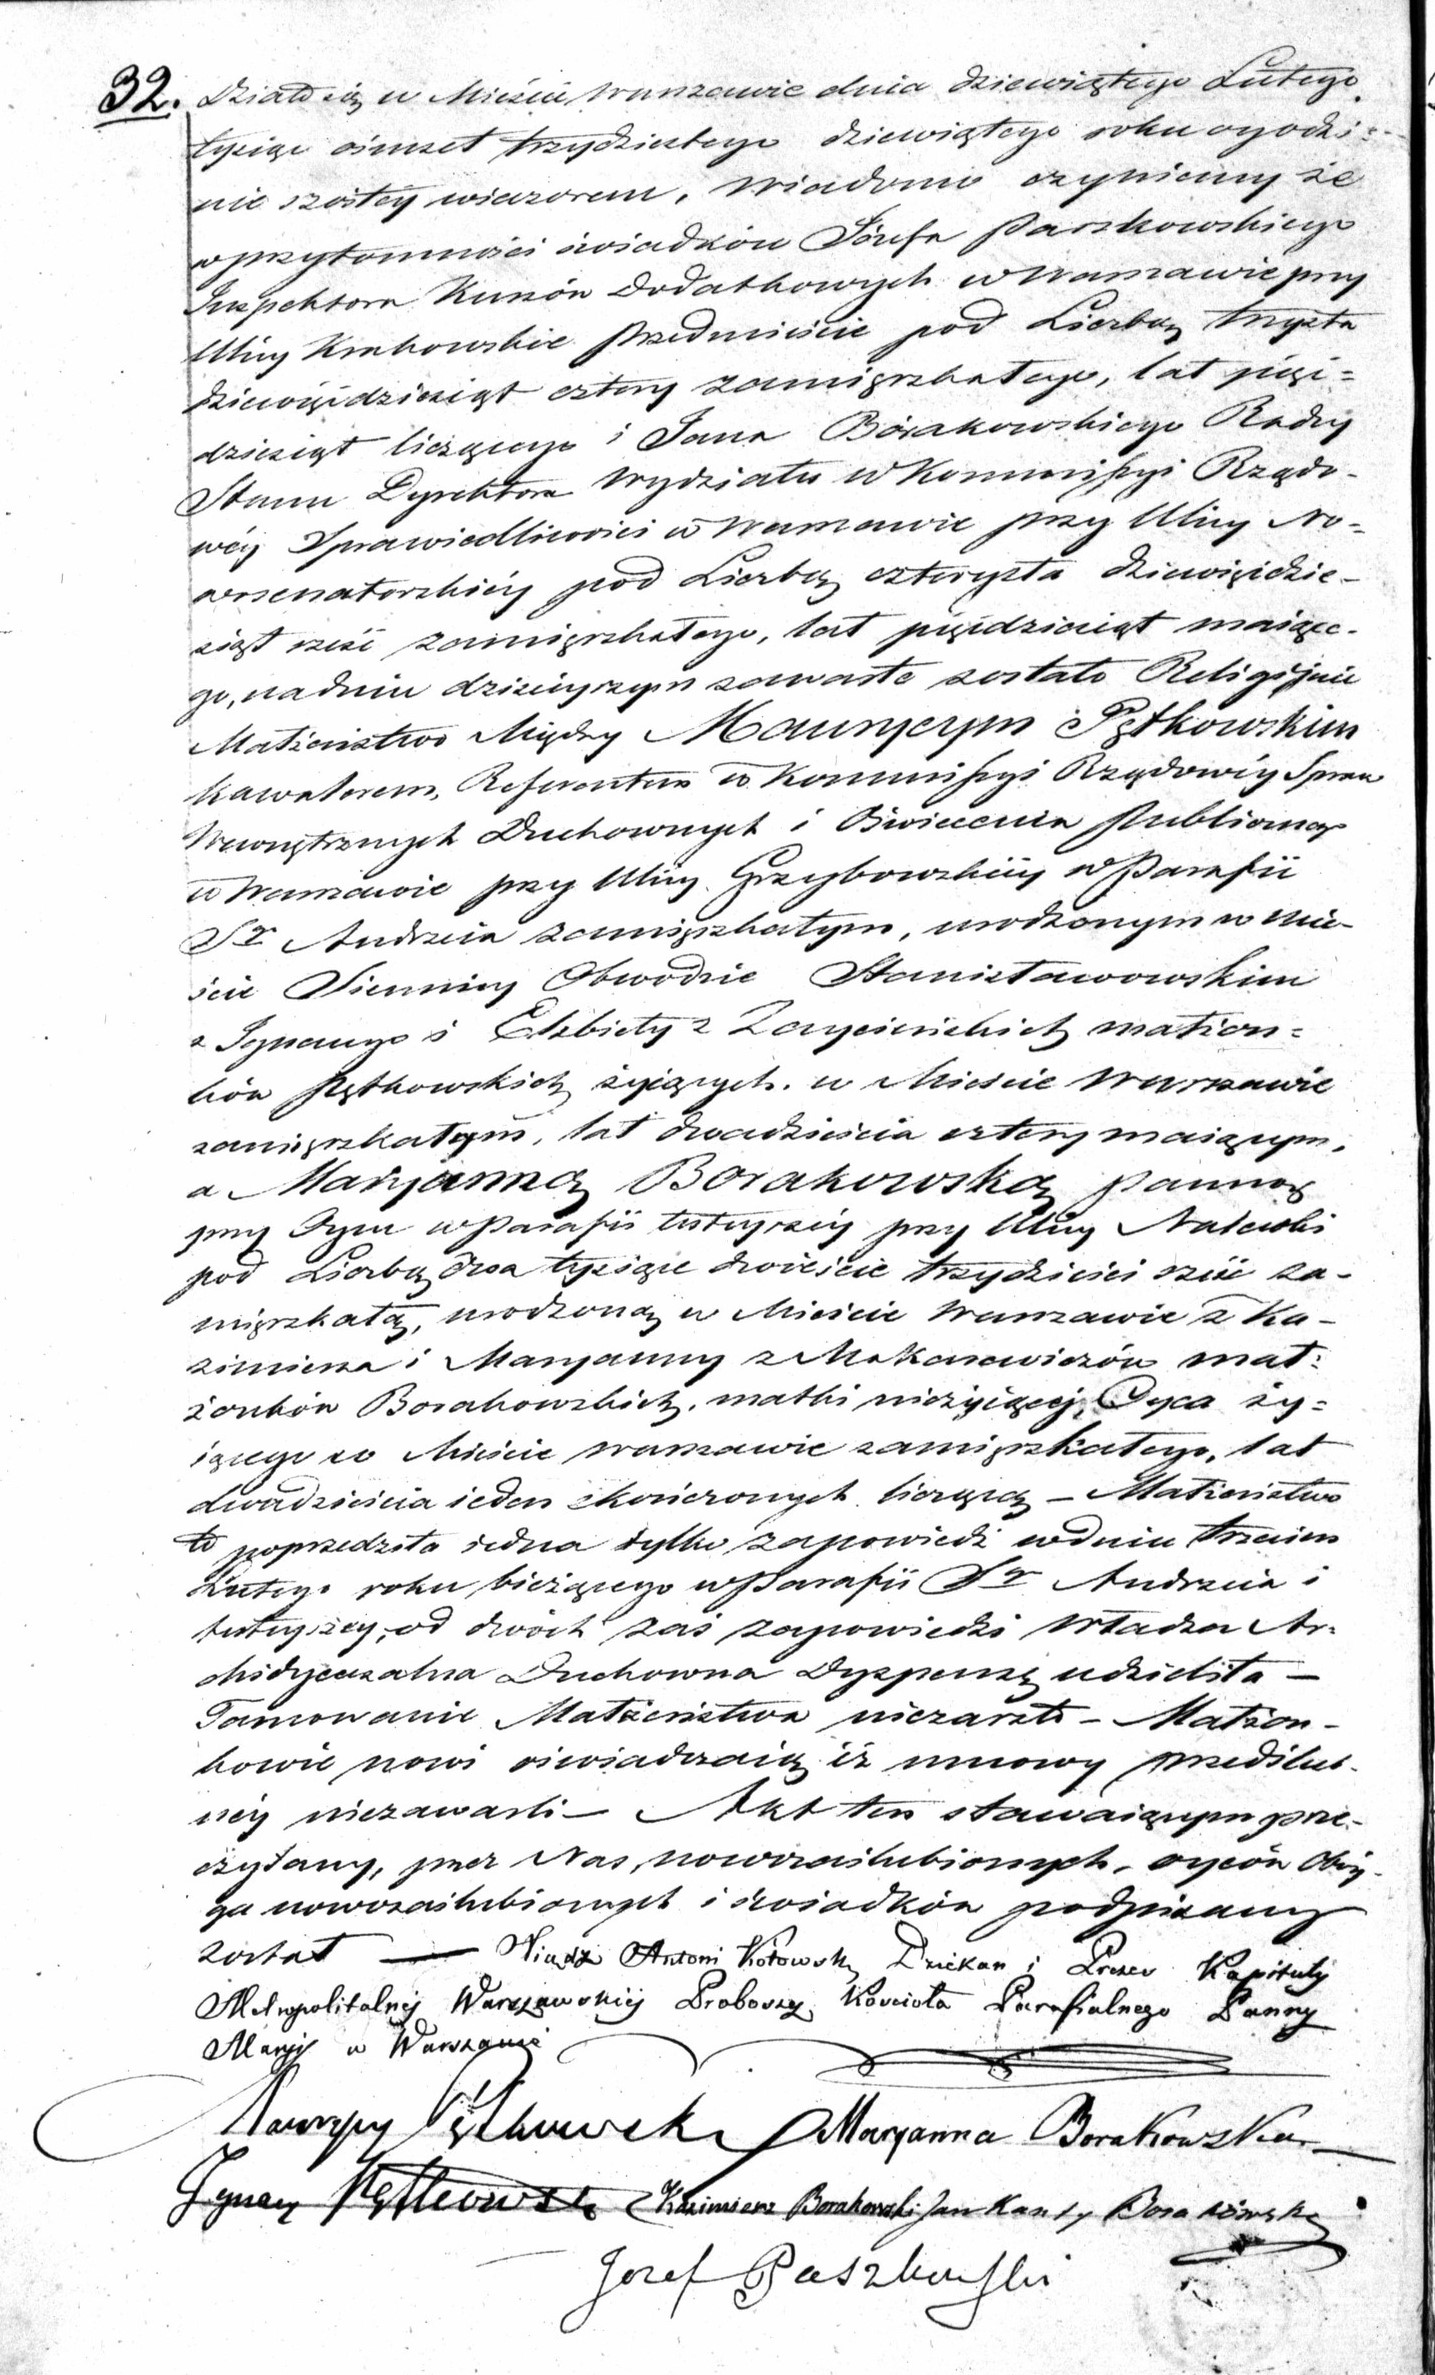 32. Działo się w Mieście Warszawie dnia dziewiątego Lutego
tysiąc ośmset trzydziestego dziewiątego roku o godzi=
nie szóstey wieczorem, Wiadomo czyniemy że
w przytomności świadków Józefa Paszkowskiego
Inspektora Kursów Dodatkowych w Warszawie przy
Ulicy Krakowskie Przedmieście pod Liczbą trzysta
dziewięćdziesiąt cztery zamięszkałego, lat pięć=
dziesiąt liczącego i Jana Borakowskiego Radcy
Stanu Dyrektora Wydziału w Kommissyi Rządo-
wéy Sprawiedliwości w Warszawie przy Ulicy No-
wosenatorskiéy pod Liczbą czterysta dziewięćdzie-
siąt sześć zamięszkałego, lat pięćdziesiąt maiące-
go, na dniu dzisieyszym zawarte zostało Religijnie
Małżeństwo Między Maurycym Pętkowskim
kawalerem, Referentem w Kommissyi Rządowéy Spraw
Wewnętrznych Duchownych i Oświecenia Publicznego
w Warszawie przy Ulicy Grzybowskiéy w Parafii
Sgo Andrzeia zamięszkałym, urodzonym w Mie-
ście Siennicy Obwodzie Stanisławowskim
z Ignacego i Elżbiety z małżon=
ków Pętkowskich żyiących w Mieście Warszawie
zamięszkałym, lat dwadzieścia cztery maiącym,
a Maryanną Borakowską Panną
przy Oycu w Parafii tuteyszéy przy Ulicy Nalewki
pod Liczbą dwa tysiące dwieście trzydzieści sześć za-
mięszkałą, urodzoną w Mieście Warszawie z Ka-
zimierza i Maryanny z Makarewiczów mał=
żonków Borakowskich, matki nieżyiącej, Oyca ży=
iącego w Mieście Warszawie zamięszkałego, lat
dwadzieścia ieden skończonych liczącą – Małżeństwo
to poprzedziła iedna tylko zapowiedź w dniu trzecim
Lutego roku bieżącego w Parafii Sgo Andrzeia i
tuteyszey, od dwóch zaś zapowiedzi Władza Ar-
chidyecezalna Duchowna Dyspensę udzieliła –
Tamowanie Małżeństwa niezaszło – Małżon-
kowie nowi oświadczaią iż umowy przedślub-
néy niezawarli – Akt ten stawaiącym prze-
czytany, przez Nas, nowozaślubionych, oyców Oboy-
ga nowozaślubionych i świadków podpisany
został — Xiądz Antoni Kotowski Dziekan i Prezes Kapituły
Metropolitalnéj Warszawskiéj Proboszcz Kościoła Parafialnego Panny
Maryi w Warszawie
Maurycy Pętkowski Maryanna Borakowska
Ignacy Pętkowski Kazimierz Borakowski Jan Kanty Borakowski
Jozef Paszkowski